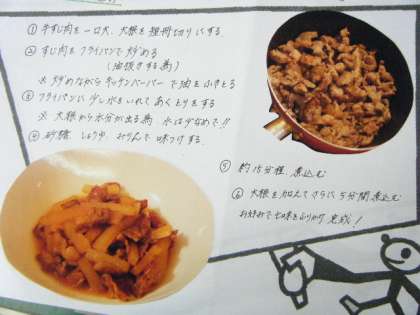 ① 牛すじ肉を一口大、大根を短冊切りにする
② すじ肉をフライパンで炒める
(油抜きする為)
※ 炒めながらキッチンペーパーで油をふきとる
③ フライパンに少し水をいれてあくとりをする
※ 大根から水分が出る為 水は少なめで!!
④ 砂糖 しょうゆ みりんで味つけする
⑤ 約15分程、煮込む
⑥ 大根を加えてさらに5分間煮込む
お好みで七味をふりかけ 完成!